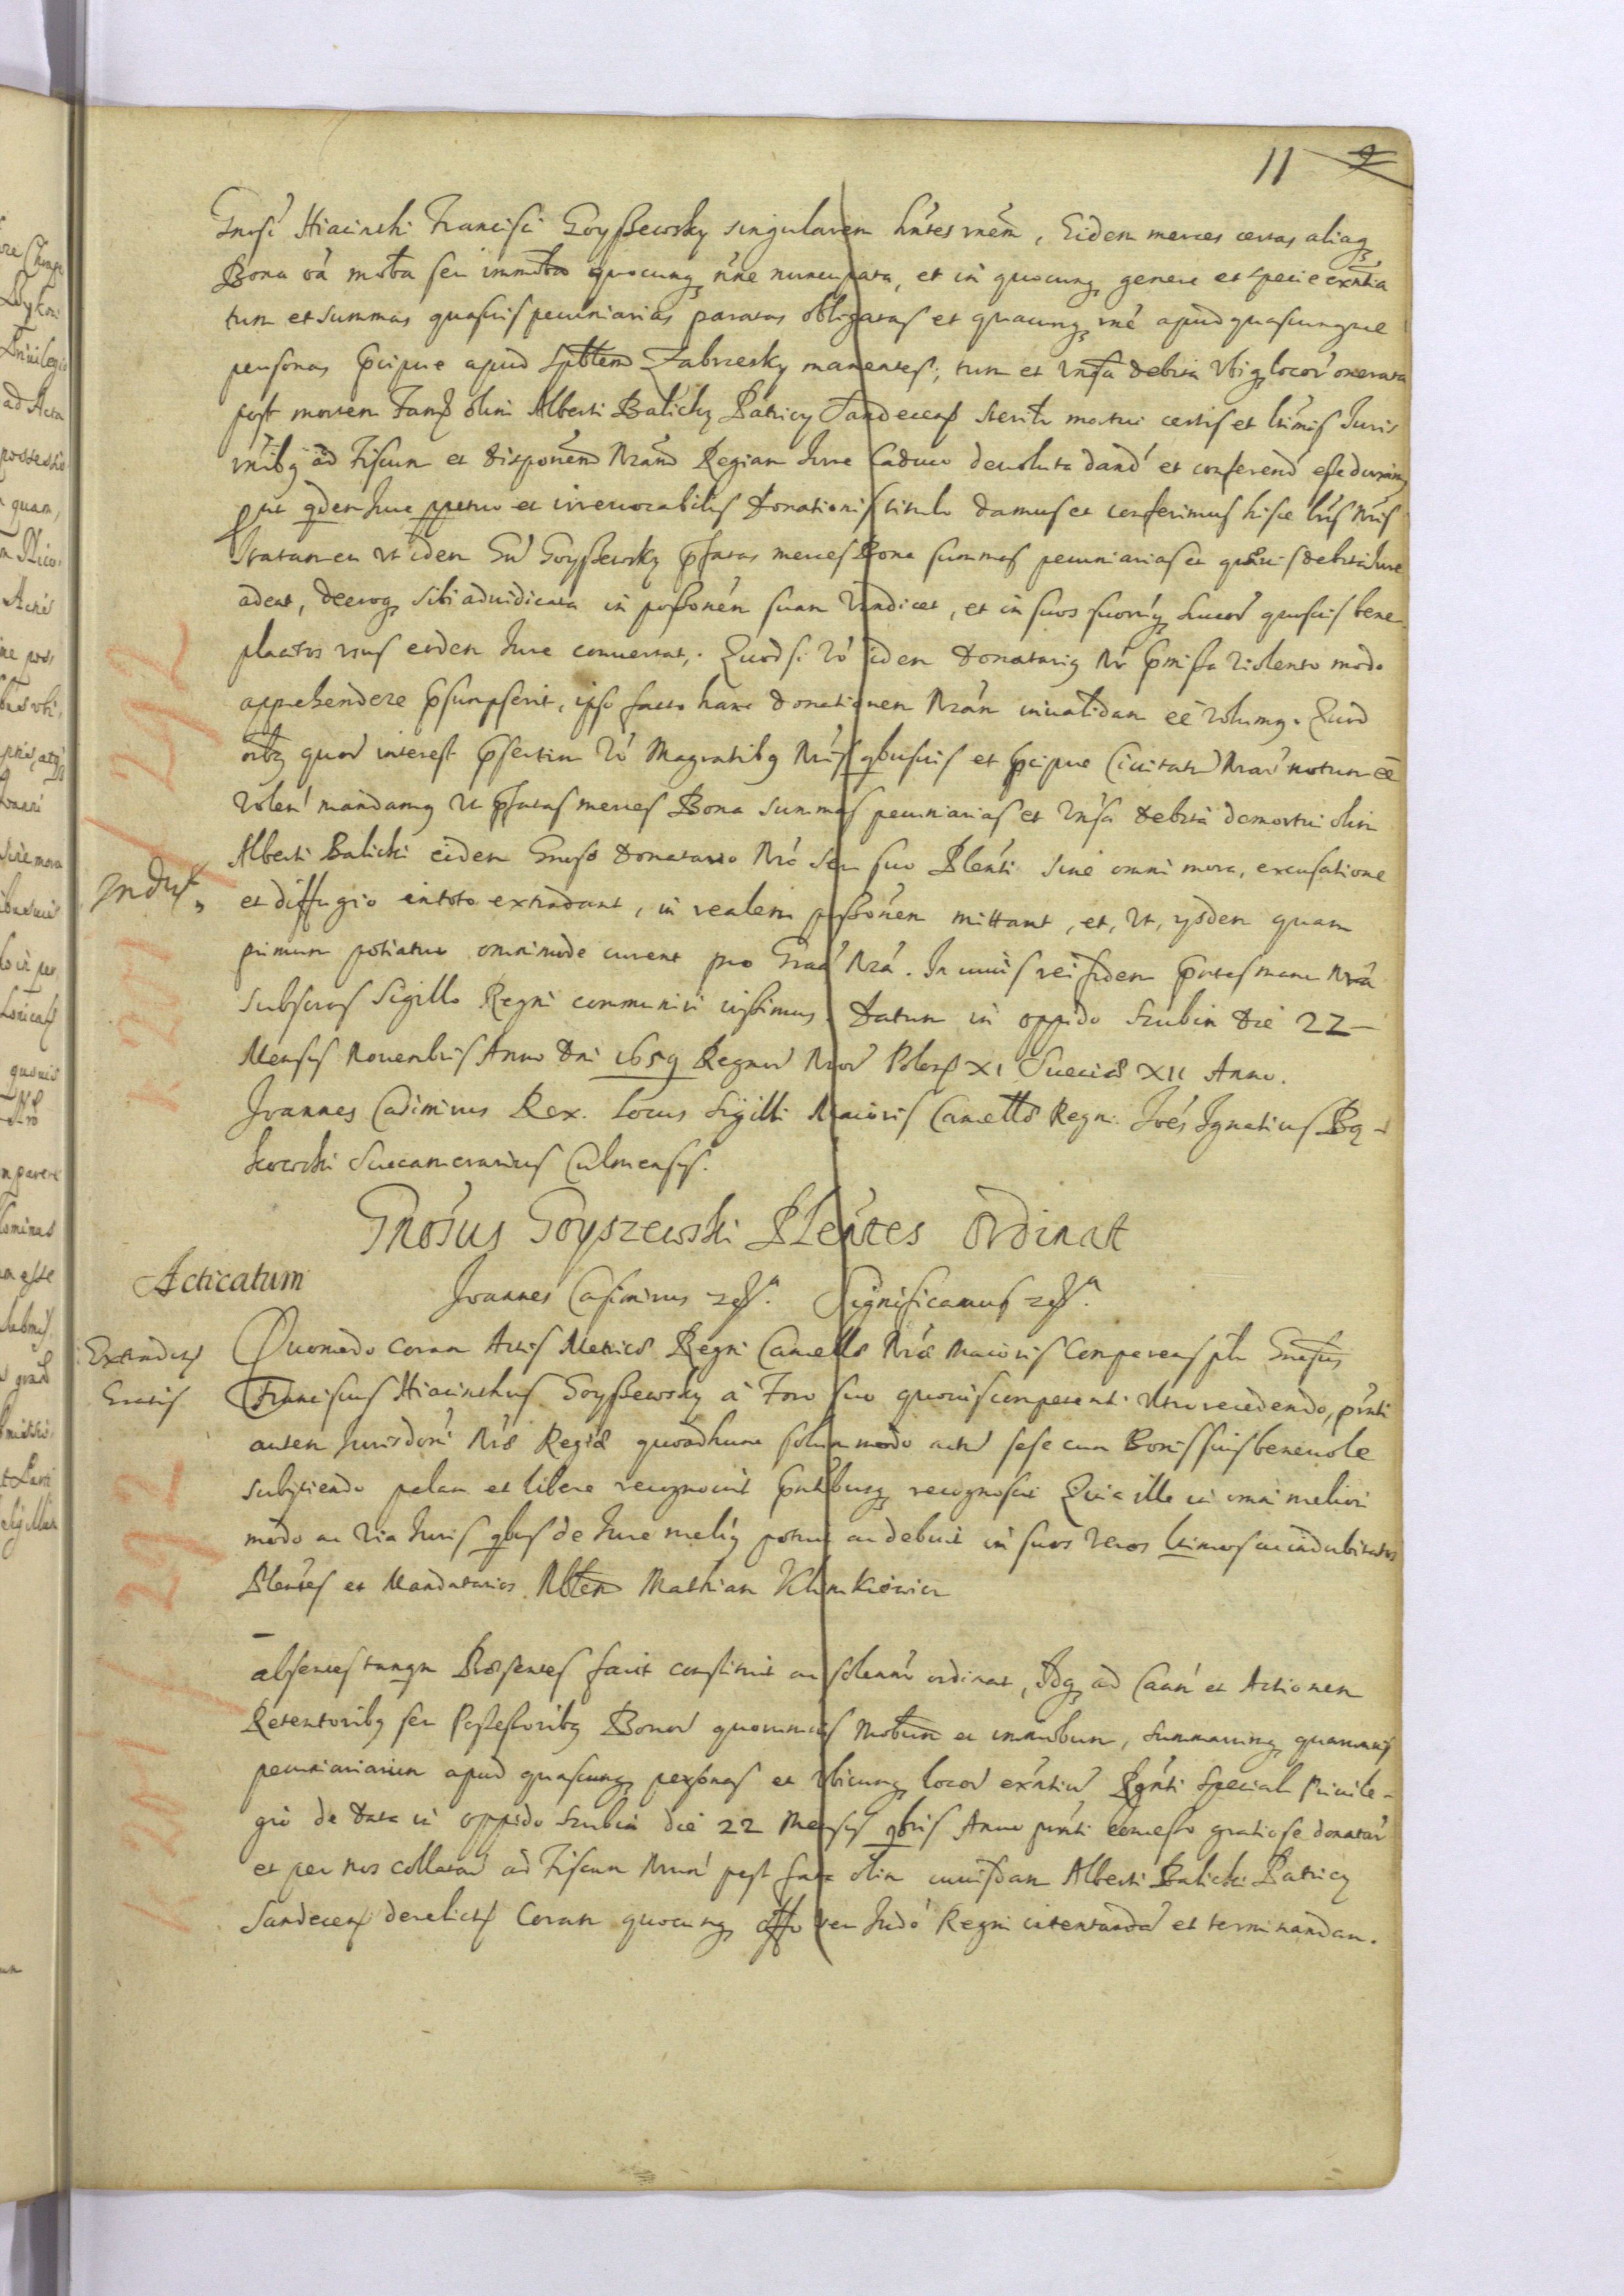 11 9
Gnosi Hiacinthi Francisci Goyszewsky singularem hntes rnem, Eidem merces certas aliaq
Bona oa mobta seu immobta quocunq nne nuncupata, et in quocunq genere et specie exntia
tum et summas quasuis pecuniarias paratas obligatas et quacunq rne apud quascunque
personas pcipue apud Spbtem Zabrzesky manentes, tum et Vnsa debita Vbiq locor onerata
post mortem Famti olim Alberti Balicky Patricy Sandecens steriti mortui certis et ltimis Juris
rnibq ad Fiscum et disponem Nram Regiam Jure Caduco deuoluta dand et conferend esse duximq
put qdem Jure ppetuo et irreuocabilis Donationis titulo damus et conferimus hisce lris Nris
Ita tamen vt idem Gn Goyszewsky pfatas merces Bona summas pecuniarias et quaeuis debita Jure
adeat, deinq sibi adiudicata in possonem suam Vendicet, et in suos suorumq succor quosuis bene
placitos vsus eodem Jure conuertat. Quod si Vo idem Donatariq Nr pmissa violento modo
apprehendere psumpserit, ipso facto hanc donationem Nram inualidam ee Volumq. Quod
oibq quor interest psertim Vo Magratibq Nris qbusuis et pcipue Ciuitatu Nrar notum ee
Volen mandamq Vt pfatas merces Bona summas pecuniarias et Vnsa debita demortui olim
Alberti Balicki eidem Gnoso Donatario Nro seu suo Plenti sine omni mora, excusatione
Indut
et diffugio in toto extradant, in realem possonem mittant, et, Vt, ysdem quam
primum potiatur omnimode curent pro Graa Nra. In cuius rei fidem pntes manu Nra
Subscras Sigillo Regni communiri iussimus. Datum in oppido Szubin Die 22
Mensis Nouembris Anno Dni 1659 Regnor Nror Polon XI Sueciae XII Anno.
Joannes Casimirus Rex. Locus Sigilli Maioris Cancellae Regni. Joes Ignatius Bą-
kowski Succamerarius Culmensis.
Gnosus Goyszewski Plentes Ordinat
Acticatum
Joannes Casimirus etc. Significamus etc.
Extraditum
Gratis
Quomodo coram Actis Metricae Regni Cancellae Nrae Maioris Comparens plr Gnosus
Franciscus Hiacinthus Goyszewsky a Foro suo quouis competenti Vltro recedendo, pnti
autem Jurisdoni Nrae Regiae quoadhunc solummodo actu sese cum Bonis suis beneuole
subijciendo palam et libere recognouit pntibusq recognoscit Quia ille in omni meliori
modo ac Via Juris qbus de Jure meliq potuit ac debuit in suos veros ltimos ac indubitatos
Plentes et Mandatarios Nbtem Mathiam Klimkiewicz
absentes tanqm Praesentes facit constituit ac solennr ordinat, Idq ad Caam et Actionem
Retentoribq seu Possessoribq Bonor quorumuis Mobium ac immobium, summarumq quarumuis
pecuniariarum apud quascunq personas et vbicunq locor exntiu Pgnti Speciali Priuile-
gio de data in oppido Szubin die 22 Mensis 9bris Anno pnti concesso gratiose donatar
et per nos collatar ad Fiscum Nrum post fata olim cuiusdam Alberti Balicki Patricy
Sandecens derelictis Coram quocunq offo seu Judo Regni intentandam et terminandam.
K 201/292
K 201/292